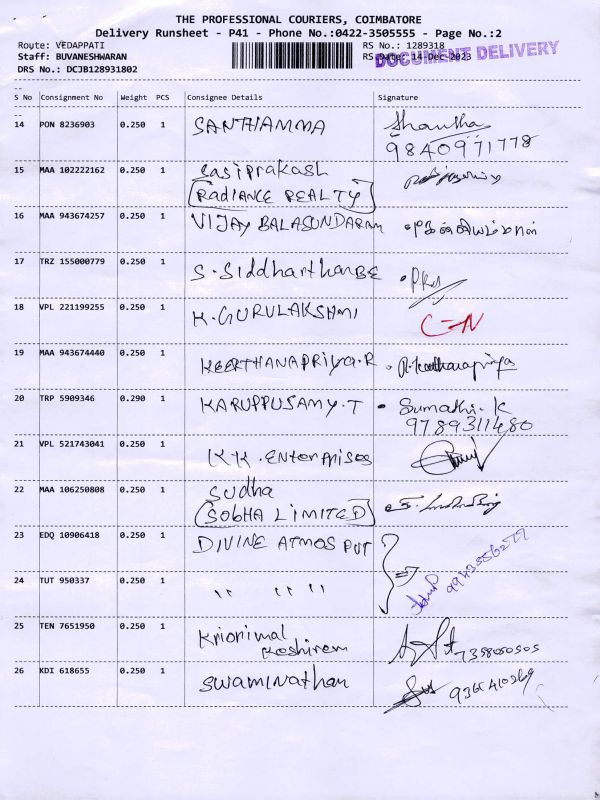 THE PROFESSIONAL COURIERS, COIMBATORE
Delivery Runsheet - P41 - Phone No.:0422-3505555 - Page No.:2
Route: VEDAPPATI
RS No.: 1289318
Staff: BUVANESHWARAN
RS Date: 14-Dec-2023
DOCUMENT DELIVERY
DRS No.: DCJB128931802
S No Consignment No Weight PCS Consignee Details Signature
14 PON 8236903 0.250 1 SANTHIAMMA Shantha
9840971778
15 MAA 102222162 0.250 1 Sasiprakash
(RADIANCE REALTY)
16 MAA 943674257 0.250 1 VIJAY BALASUNDARAM
17 TRZ 155000779 0.250 1 S. Siddharthan BE
18 VPL 221199255 0.250 1 K. GURULAKSHMI C-N
19 MAA 943674440 0.250 1 KEERTHANAPRIYA.R R. Keerthanapriya
20 TRP 5909346 0.290 1 KARUPPUSAMY.T Sumathi.K
9789311480
21 VPL 521743041 0.250 1 KK. Enterprises
22 MAA 106250808 0.250 1 Sudha
(SOBHA LIMITED)
23 EDQ 10906418 0.250 1 DIVINE ATMOS PVT
9943556277
24 TUT 950337 0.250 1 " " "
25 TEN 7651950 0.250 1
26 KDI 618655 0.250 1 Swaminathan